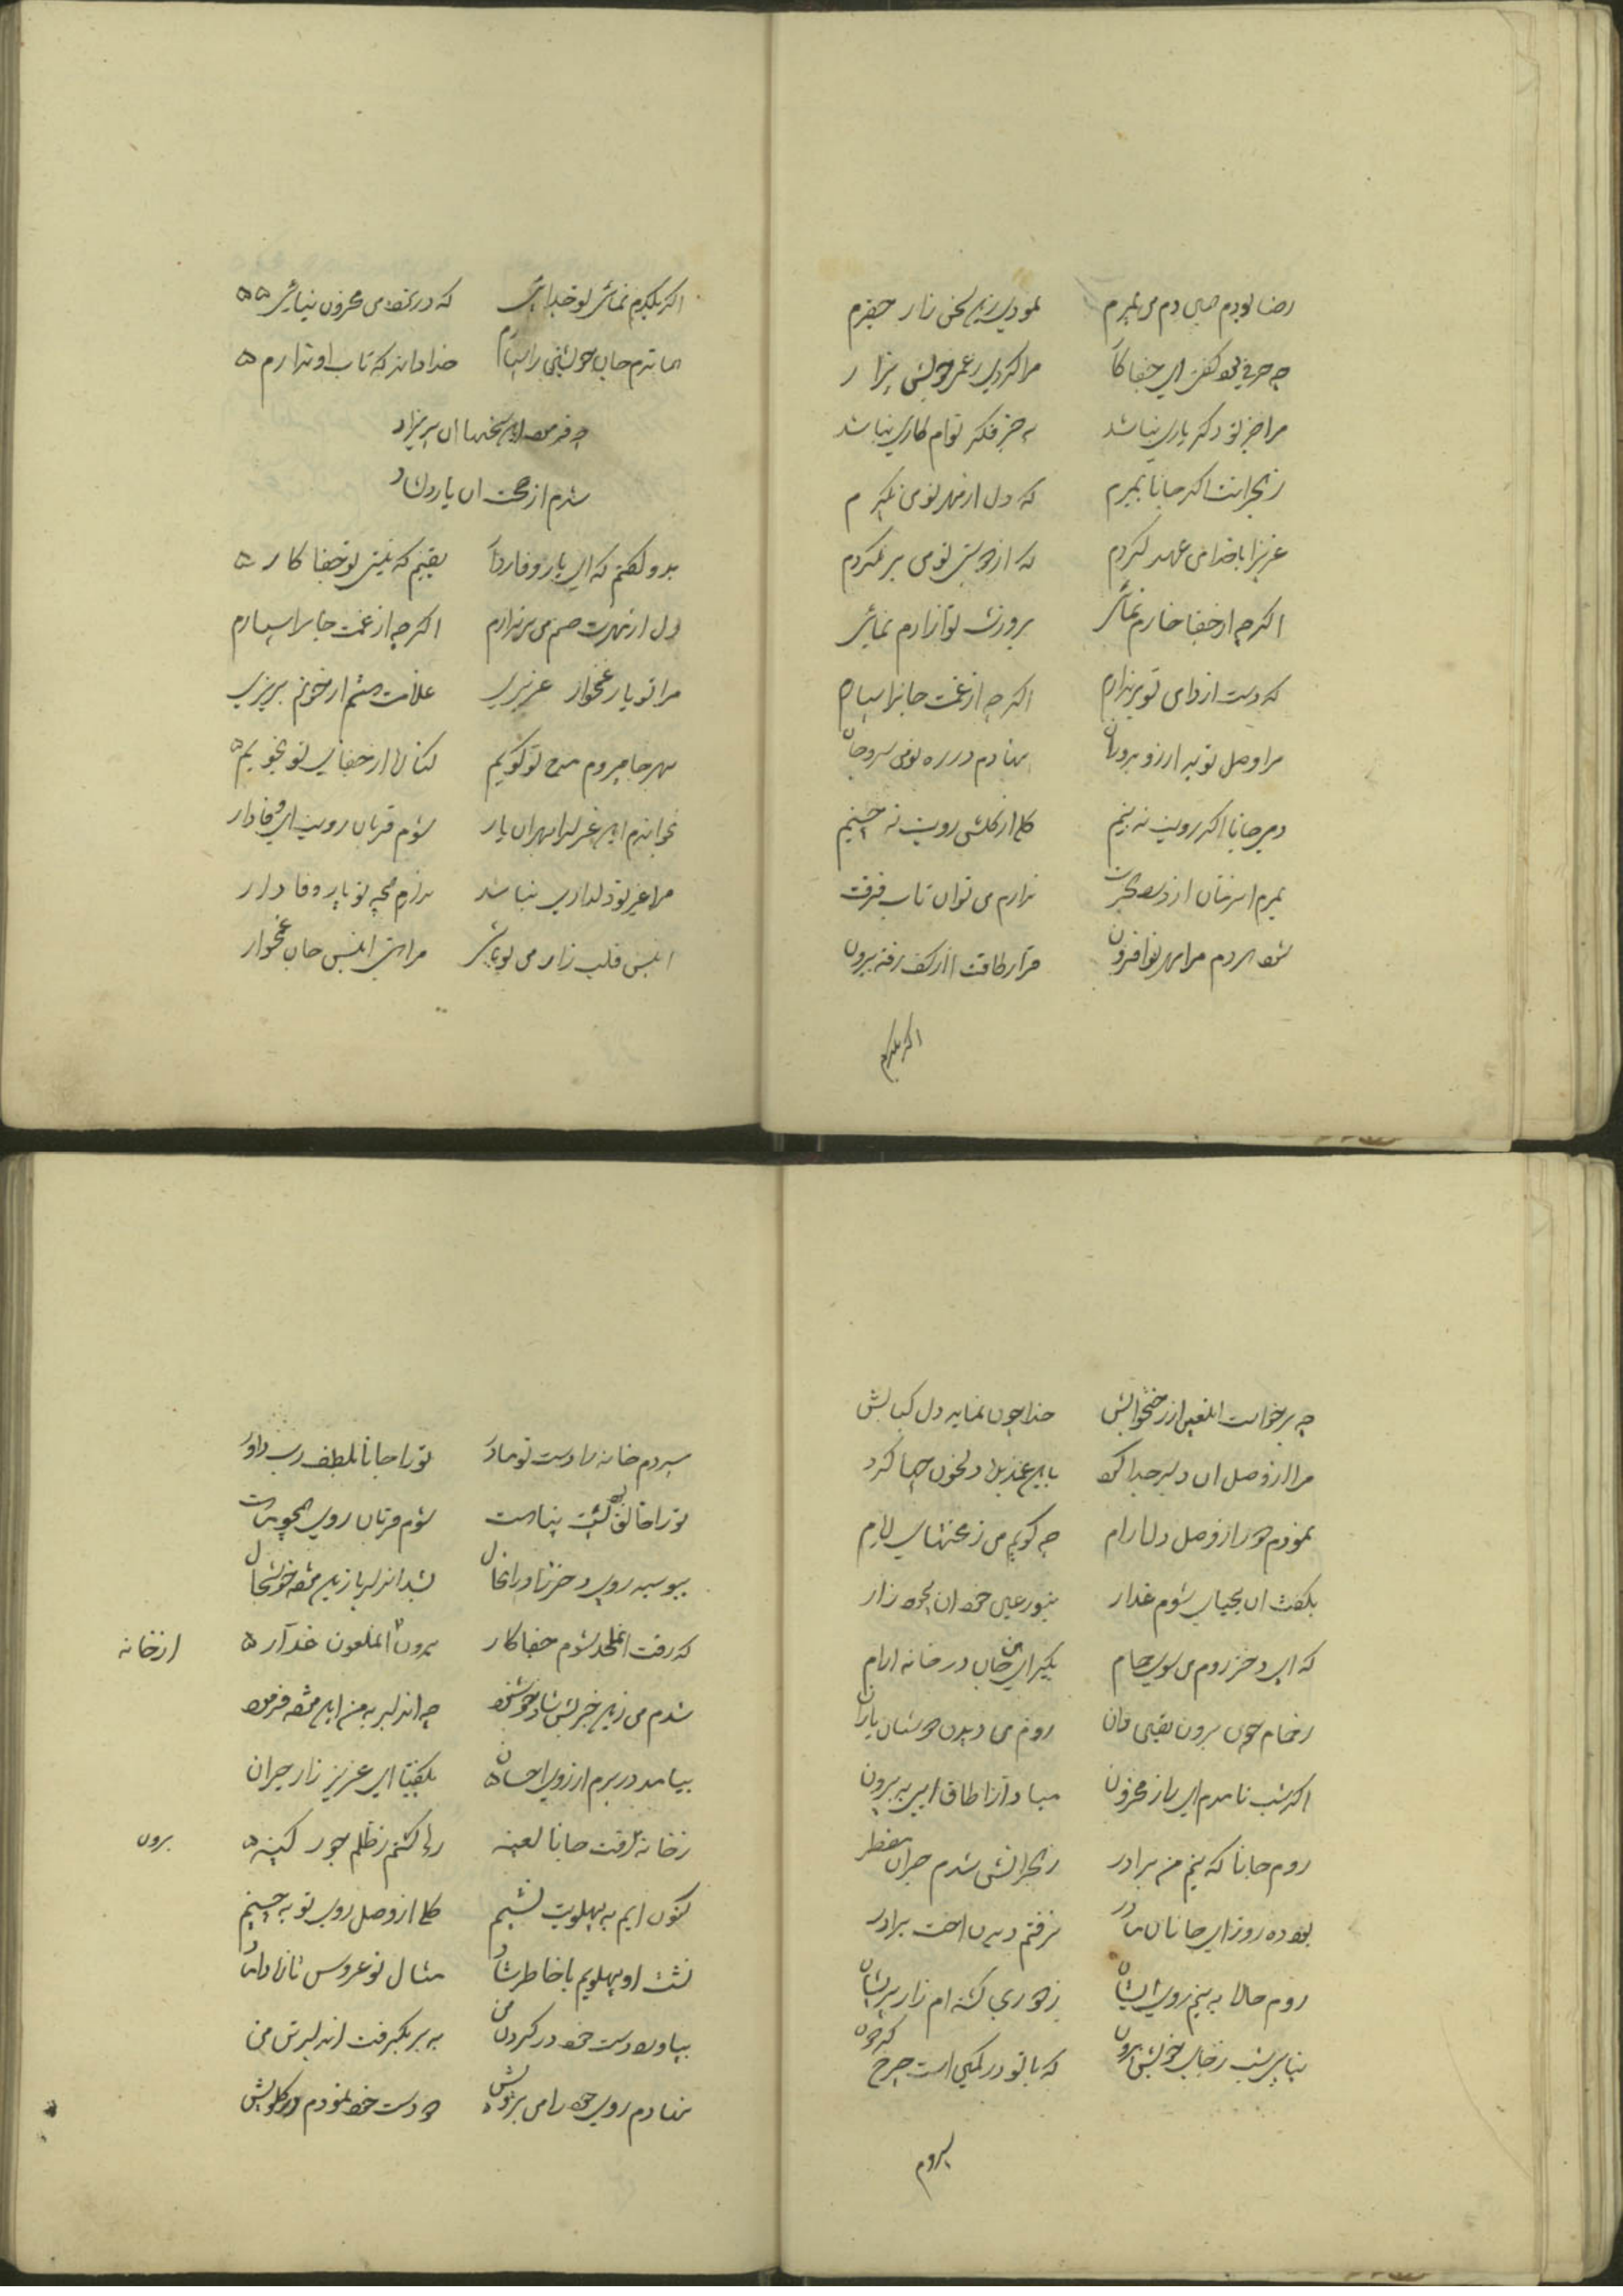 رضا بودم همان دم من بمیرم نمودی زین سخن زار حقیرم
چه حرفی بود گفتی ای جفا کار مرا کردی ز عمر خویش بیزار
مرا جز تو دگر یاری نباشد به جز فکر توام کاری نباشد
ز هجرانت اگر جانا بمیرم که دل از مهر تو من نگیرم
عزیزا با خدا من عهد کردم که از عشق تو من بر نگردم
اگر چه از جفا خارم نمائی بروزت تو آزارم نمائی
که دست از دامن تو بر ندارم اگر چه از غمت جانرا سپارم
مرا وصل تو به ارزو بدوران نهادم در ره تو من سر و جان
دمی جانا اگر رویت نه بینم گل از گلشن رویت نه چینم
بمیرم ندارم من توان تاب فرقت
مرا مهر تو افزون قرار طاقت از کف رفته بیرون
اگر یکدم
اگر یکدم نمائی تو جدائی که در نزد من محزون نیائی
خدا داند که تاب او ندارم
چه فرمود این سخنها ان پریزاد
شدم از صحبت ان یار دلشاد
بدو گفتم که ای یار وفادار یقینم که نیستی تو جفا کار
دل از مهرت صنم من بر ندارم اگر چه از غمت جانرا سپارم
مرا تو یار غمخوار عزیزی غلامت هستم ار خونم بریزی
بهر جا میروم مدح تو گویم کنار از جفای تو نجویم
بخواندم این غزل را بهر ان یار شوم قربان رویت ای وفادار
مرا غیر تو دلداری نباشد ندارم همچو تو یار وفادار
انیس قلب زار من تو باشی مرا هستی انیس جان غمخوار
چه برخواست ان لعین از رختخوابش خدا چون نماید دل کبابش
مرا از وصل ان دلبر جدا کرد
نمودم دور از وصل دلارام چه گویم من ز محنتهای ایام
بگفت ان بیحیای شوم غدار
که ای دختر روم من سوی حمام بگیر ای جان در خانه ارام
ز حمام چون برون روم من دیدن دوستان یاران
اگر شب نامدم ای زار محزون مبادا از اطاق ایی به بیرون
روم جانا که بینم من برادر ز هجرانش شدم حیران مضطر
بود ده روز ای جانان مادر نرفتم دیدن اخت برادر
روم حالا به بینم روی ایشان ز دوری گشته ام زار پریشان
که با تو در کمین است چرخ گردون
سپردم
سپردم خانه را دست تو مادر تو را جانا بلطف رب داور
تو را خالق پشت پناهت شوم قربان روی همچو ماهت
ببوسید روی دختر را در انحال بشد ان دلربا زین مژده خوشحال
که رفت ان ملحد شوم جفا کار برون ان ملعون غدار از خانه
شدم من زین خبر شاد خوشنود چه ان دلبر به من این مژده فرمود
بیامد در برم از روی احسان بگفتا ای عزیز زار حیران
ز خانه رفت جانا لعینه رها گشتم ز ظلم جور کینه برون
کنون ایم به پهلویت نشینم گل از وصل روی تو به چینم
نشست او پهلویم با خاطر شاد مثال نو عروس تازه داماد
بیاورد دست خود در گردن من به بر بگرفت ان دلبر تن من
نهادم روی خود را من برویش دو دست خود نمودم در گلویش